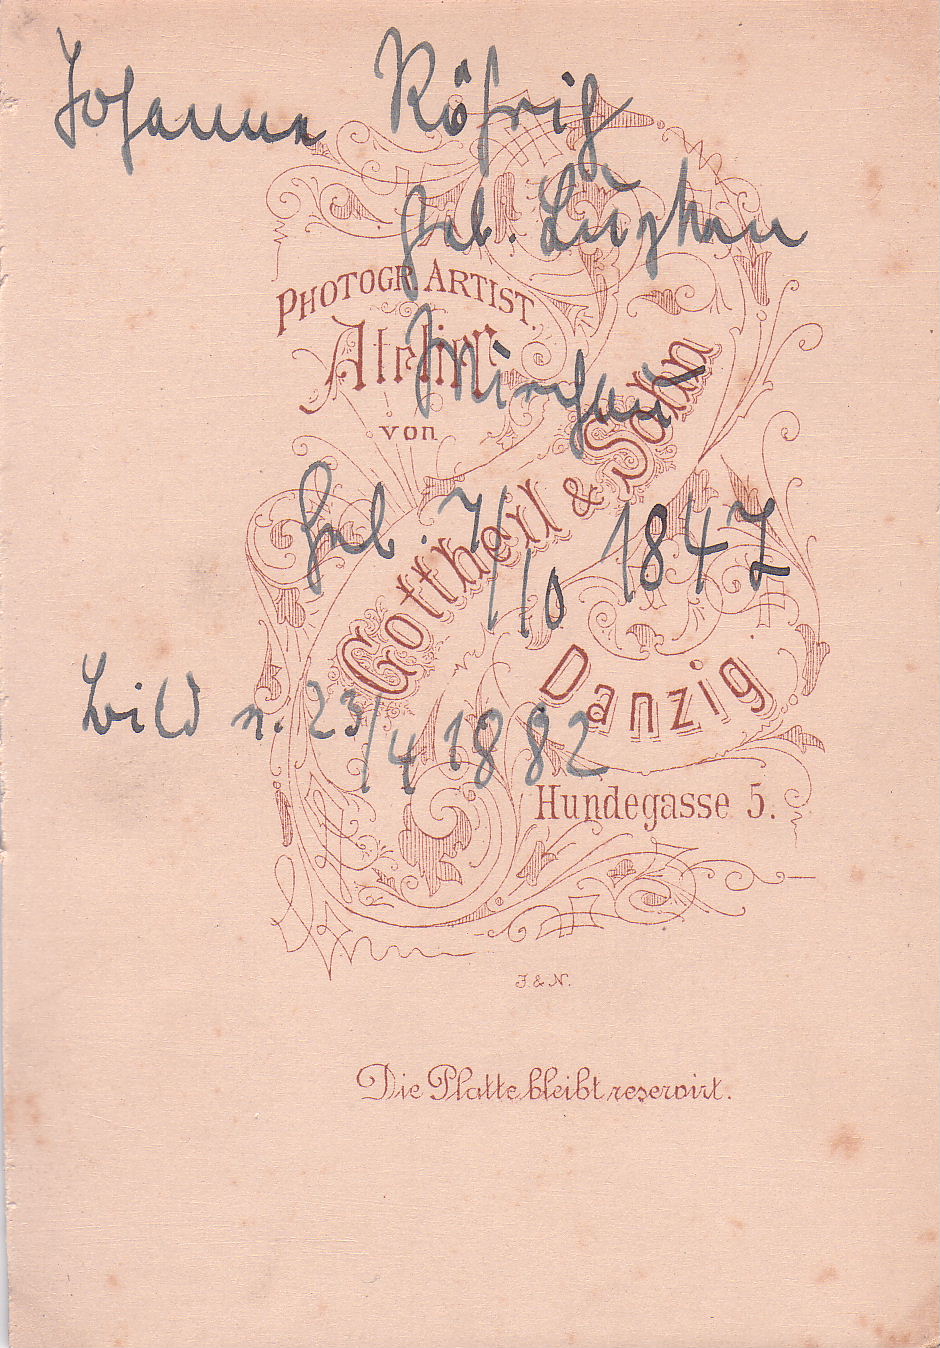 Johanna Röhrig
geb.
PHOTOGR. ARTIST.
Atelier
von
Gottheil & Sohn
Geb. 7/10 1847
Danzig
Bild v. 23/4 1882
Hundegasse 5.
J. & N.
Die Platte bleibt reservirt.